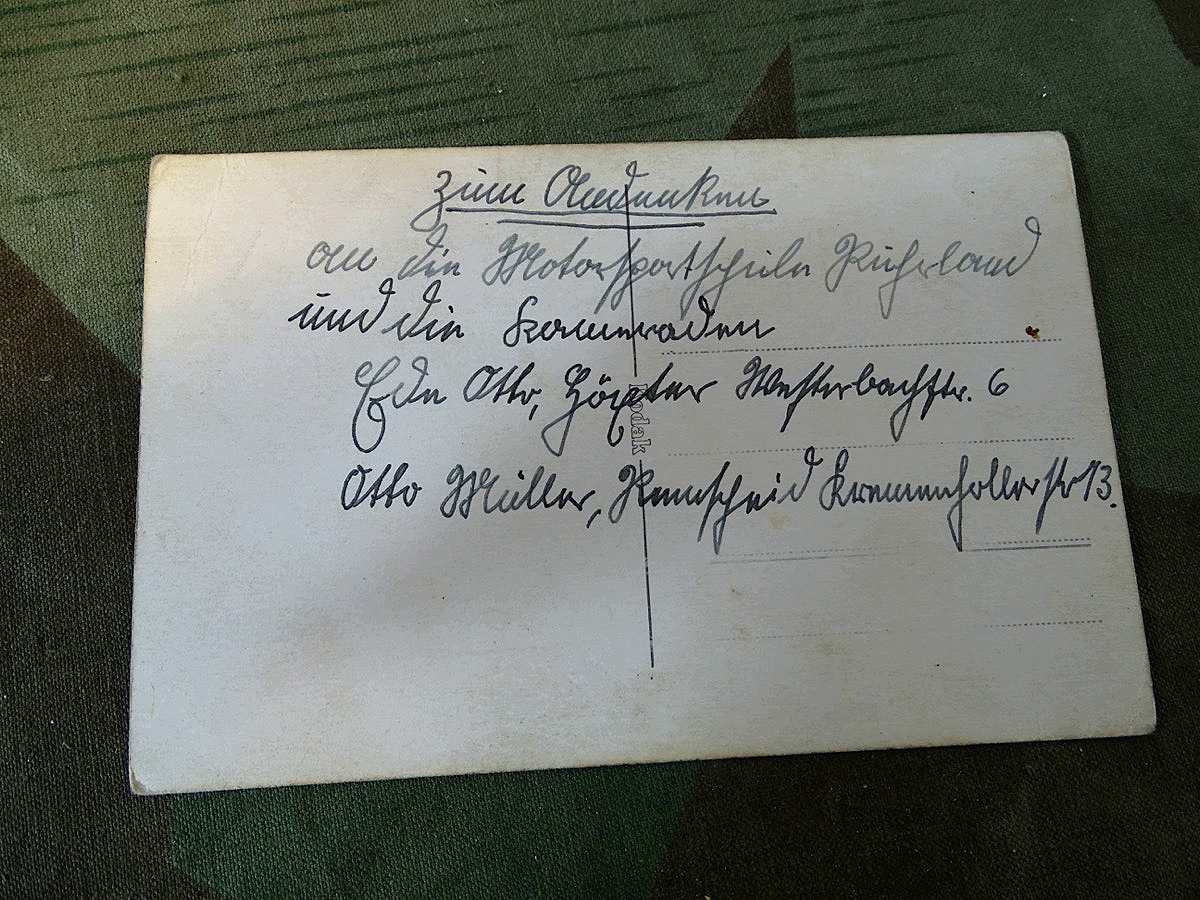 Zum Andenken
an die Motorsportschule Ruhrland
und die Kameraden
Ede Otto, Westerbachstr. 6
Otto Müller, Remscheid Kremenhollerstr 13.
Kodak